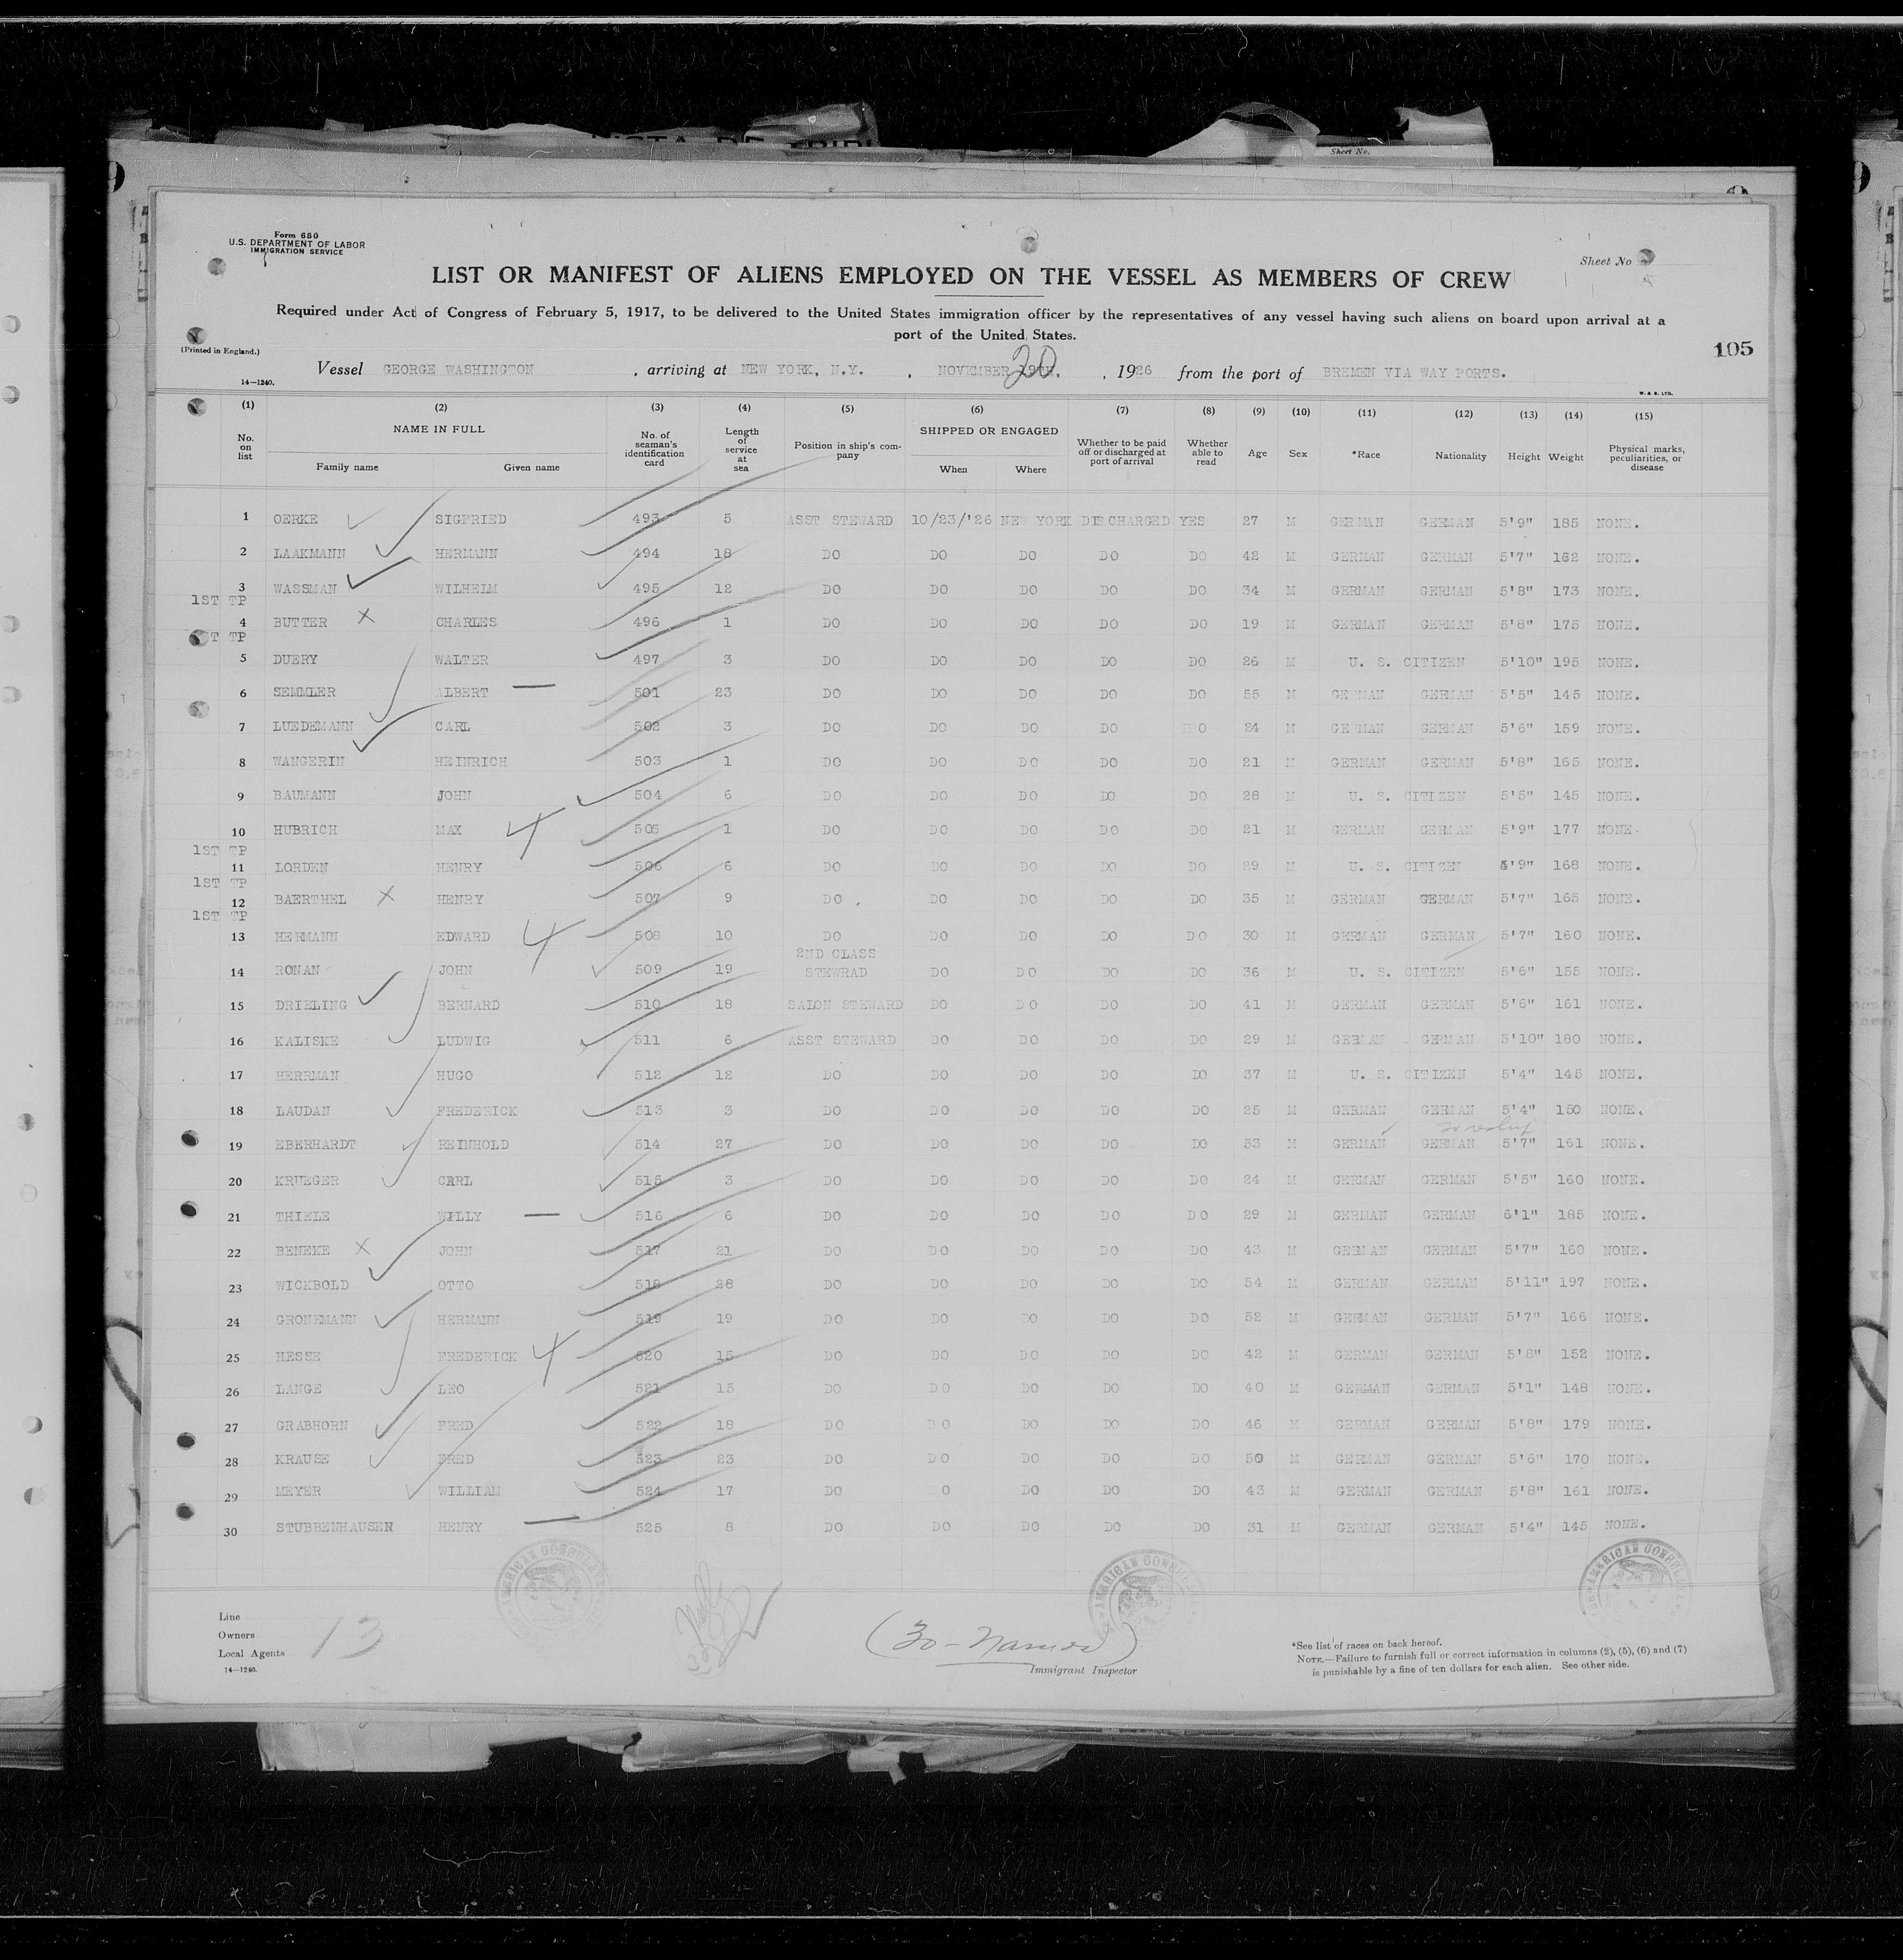 Sheet No.
Form 680
U.S. DEPARTMENT OF LABOR
IMMIGRATION SERVICE
Sheet No
LIST OR MANIFEST OF ALIENS EMPLOYED ON THE VESSEL AS MEMBERS OF CREW
Required under Act of Congress of February 5, 1917, to be delivered to the United States immigration officer by the representatives of any vessel having such aliens on board upon arrival at a
port of the United States.
105
(Printed in England.)
Vessel GEORGE WASHINGTON , arriving at NEW YORK, N.Y. , NOVEMBER 19TH. 20 , 1926 from the port of BREMEN VIA WAY PORTS.
14—1240.
W. & S. LTD.
(1) (2) (3) (4) (5) (6) (7) (8) (9) (10) (11) (12) (13) (14) (15)
No. on list NAME IN FULL Family name Given name No. of seaman's identification card Length of service at sea Position in ship's company SHIPPED OR ENGAGED When Where Whether to be paid off or discharged at port of arrival Whether able to read Age Sex *Race Nationality Height Weight Physical marks, peculiarities, or disease
1 OERKE SIGFRIED 493 5 ASST STEWARD 10/23/'26 NEW YORK DISCHARGED YES 27 M GERMAN GERMAN 5'9" 185 NONE.
2 LAAKMANN HERMANN 494 18 DO DO DO DO DO 42 M GERMAN GERMAN 5'7" 162 NONE.
3 WASSMAN WILHELM 495 12 DO DO DO DO DO 34 M GERMAN GERMAN 5'8" 173 NONE.
1ST TP
4 BUTTER X CHARLES 496 1 DO DO DO DO DO 19 M GERMAN GERMAN 5'8" 175 NONE.
T TP
5 DUERY WALTER 497 3 DO DO DO DO DO 26 M U. S. CITIZEN 5'10" 195 NONE.
6 SEMMLER ALBERT — 501 23 DO DO DO DO DO 55 M GERMAN GERMAN 5'5" 145 NONE.
7 LUEDEMANN CARL 502 3 DO DO DO DO DO 24 M GERMAN GERMAN 5'6" 159 NONE.
8 WANGERIN HEINRICH 503 1 DO DO DO DO DO 21 M GERMAN GERMAN 5'8" 165 NONE.
9 BAUMANN JOHN 504 6 DO DO DO DO DO 28 M U. S. CITIZEN 5'5" 145 NONE.
10 HUBRICH MAX 4 505 1 DO DO DO DO DO 21 M GERMAN GERMAN 5'9" 177 NONE.
1ST TP
11 LORDEN HENRY 506 6 DO DO DO DO DO 29 M U. S. CITIZEN 5'9" 168 NONE.
1ST TP
12 BAERTHEL X HENRY 507 9 DO . DO DO DO DO 35 M GERMAN GERMAN 5'7" 165 NONE.
1ST TP
13 HERMANN EDWARD 4 508 10 DO DO DO DO DO 30 M GERMAN GERMAN 5'7" 160 NONE.
2ND CLASS
14 RONAN JOHN 509 19 STEWRAD DO DO DO DO 36 M U. S. CITIZEN 5'6" 155 NONE.
15 DRIELING BERNARD 510 18 SALON STEWARD DO DO DO DO 41 M GERMAN GERMAN 5'6" 161 NONE.
16 KALISKE LUDWIG 511 6 ASST STEWARD DO DO DO DO 29 M GERMAN GERMAN 5'10" 180 NONE.
17 HERRMAN HUGO 512 12 DO DO DO DO DO 37 M U. S. CITIZEN 5'4" 145 NONE.
18 LAUDAN FREDERICK 513 3 DO DO DO DO DO 25 M GERMAN GERMAN 5'4" 150 NONE.
19 EBERHARDT REINHOLD 514 27 DO DO DO DO DO 53 M GERMAN GERMAN 5'7" 161 NONE.
20 KRUEGER CARL 515 3 DO DO DO DO DO 24 M GERMAN GERMAN 5'5" 160 NONE.
21 THIELE WILLY — 516 6 DO DO DO DO DO 29 M GERMAN GERMAN 6'1" 185 NONE.
22 BENEKE X JOHN 517 21 DO DO DO DO DO 43 M GERMAN GERMAN 5'7" 160 NONE.
23 WICKBOLD OTTO 518 28 DO DO DO DO DO 54 M GERMAN GERMAN 5'11" 197 NONE.
24 GRONEMANN HERMANN 519 19 DO DO DO DO DO 52 M GERMAN GERMAN 5'7" 166 NONE.
25 HESSE FREDERICK 4 520 15 DO DO DO DO DO 42 M GERMAN GERMAN 5'8" 152 NONE.
26 LANGE LEO 521 15 DO DO DO DO DO 40 M GERMAN GERMAN 5'1" 148 NONE.
27 GRABHORN FRED 522 18 DO DO DO DO DO 46 M GERMAN GERMAN 5'8" 179 NONE.
28 KRAUSE FRED 523 23 DO DO DO DO DO 50 M GERMAN GERMAN 5'6" 170 NONE.
29 MEYER WILLIAM 524 17 DO DO DO DO DO 43 M GERMAN GERMAN 5'8" 161 NONE.
30 STUBBENHAUSEN HENRY — 525 8 DO DO DO DO DO 31 M GERMAN GERMAN 5'4" 145 NONE.
AMERICAN CONSULATE
AMERICAN CONSULATE
AMERICAN CONSULATE
Line
Owners
Local Agents
14—1240.
13
(30 - Names)
Immigrant Inspector
*See list of races on back hereof.
NOTE.—Failure to furnish full or correct information in columns (2), (5), (6) and (7)
is punishable by a fine of ten dollars for each alien. See other side.